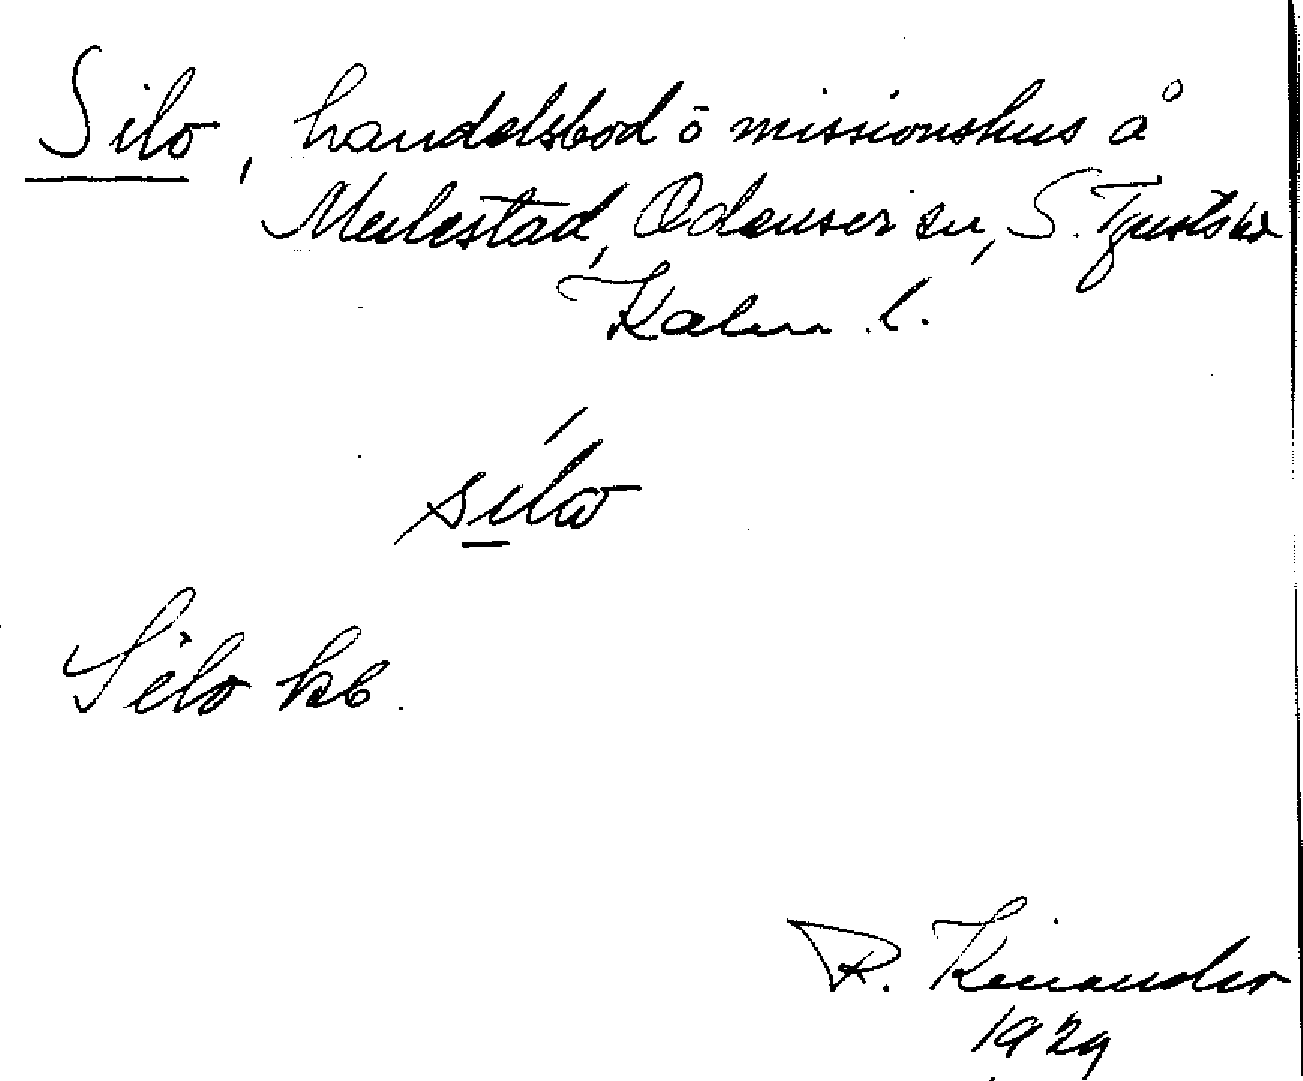 Silo, handelsbod ō missionshus å
Mulestad, Odensvi sn, S. Tjusts hd
Kalm. l.
sílω
Silo kb.
R. Kinander
1929